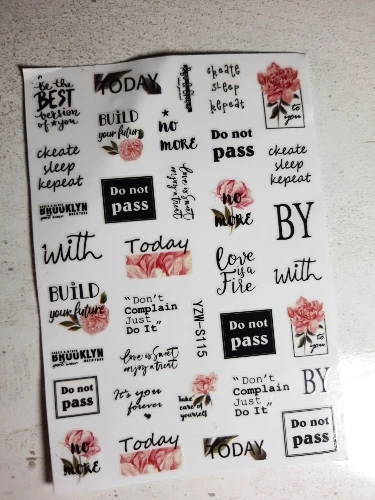 be the
BEST
version
of you
TODAY
create
sleep
repeat
to
you
BUILD
your future
no
MORE
Do not
pass
create
sleep
repeat
create
sleep
repeat
BROOKLYN
Do not
pass
Love is sweet
enjoy a treat
no
MORE
BY
with
Today
love
is a
Fire
with
BUILD
your future
"Don't
Complain
Just
Do It"
YZW-S115
Do not
pass
to
you
BROOKLYN
Love is sweet
enjoy a treat
Do not
pass
It's you
forever
Take
care of
yourself
"Don't
Complain
Just
Do It"
BY
no
MORE
Today
TODAY
Do not
pass